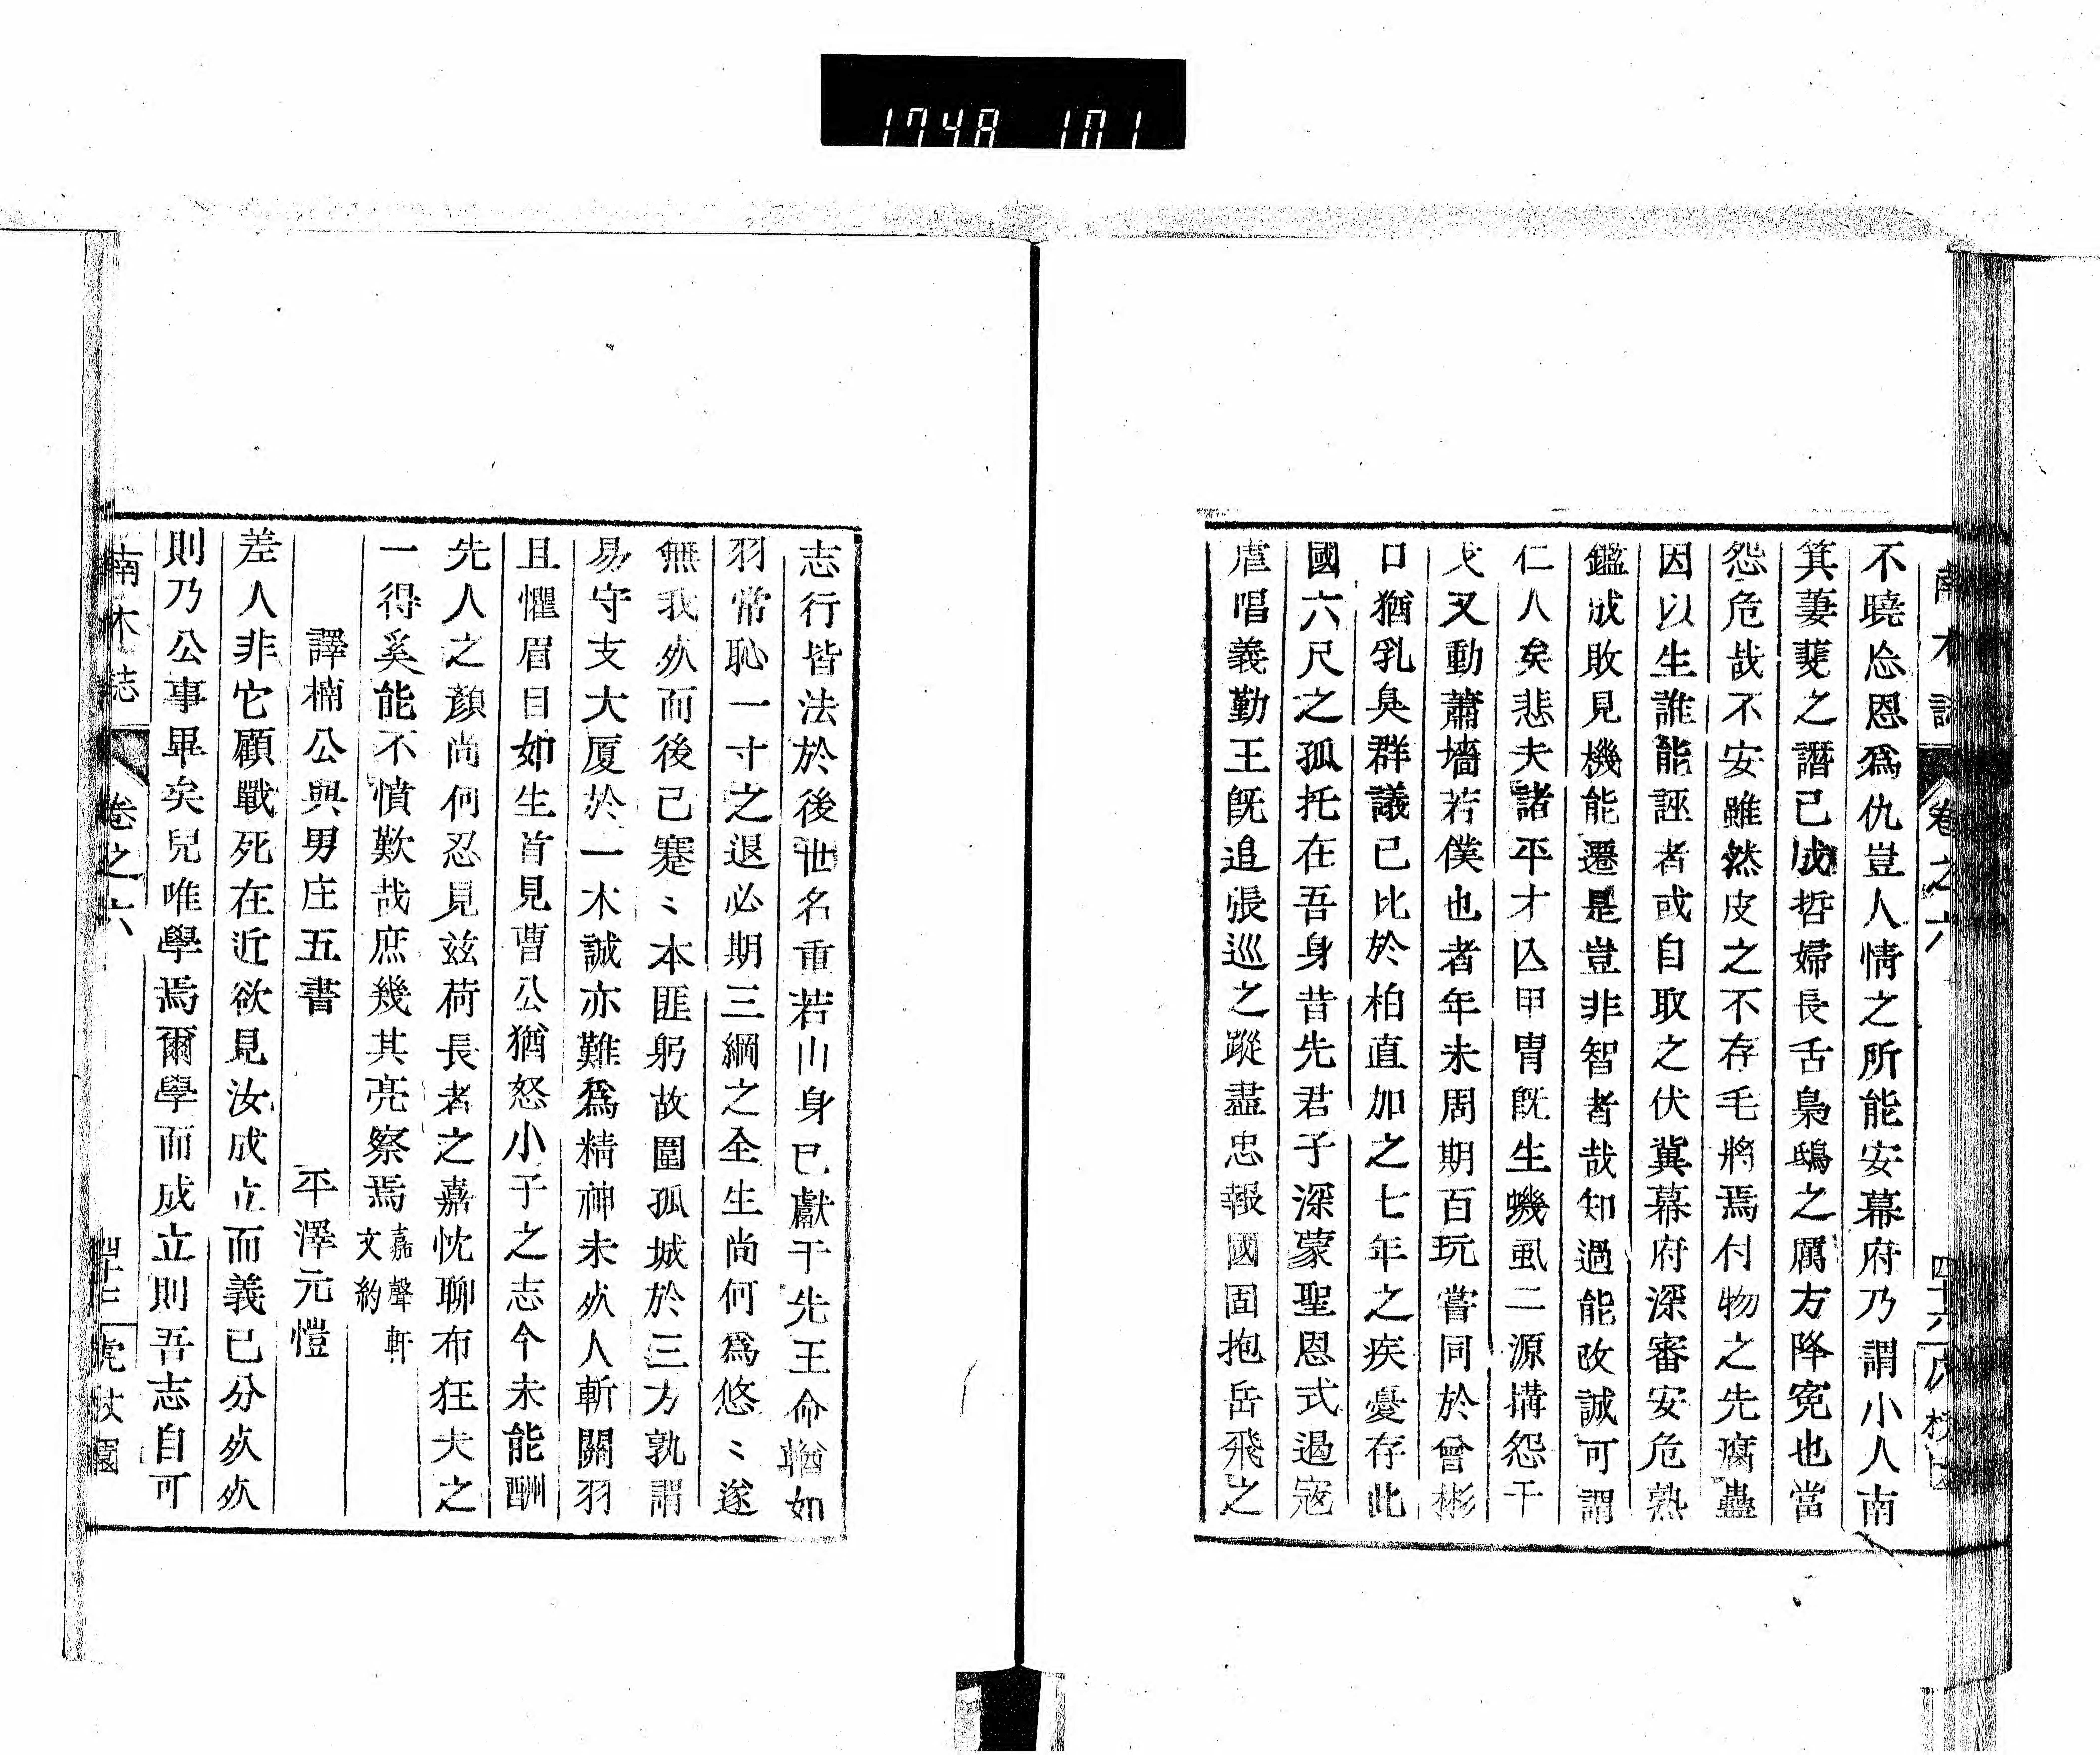 1748 101
南木誌 卷之六 四十六
不曉忩恩爲仇豈人情之所能安幕府乃謂小人南
箕萋斐之譖已成哲婦長舌梟鴟之厲方降寃也當
怨危哉不安雖然皮之不存毛將焉付物之先腐蟲
因以生誰能誣者或自取之伏冀幕府深審安危熟
鑑成敗見機能遷是豈非智者哉知過能改誠可謂
仁人矣悲夫諸平才亾甲冑旣生蟣虱二源搆怨干
戈又動蕭墻若僕也者年未周期百玩嘗同於曾彬
口猶乳臭群議已比於柏直加之七年之疾憂存此
國六尺之孤托在吾身昔先君子深蒙聖恩式遏寇
虐唱義勤王旣追張巡之蹤盡忠報國固抱岳飛之
志行皆法於後世名重若山身已獻干先王命輶如
羽常恥一寸之退必期三綱之全生尚何爲悠〻遂
無我歿而後已蹇〻本匪躬故圍孤城於三方孰謂
易守支大厦於一木誠亦難爲精神未歿人斬關羽
且懼眉目如生首見曹公猶怒小子之志今未能酬
先人之顏尚何忍見兹荷長者之嘉忱聊布狂夫之
一得奚能不憤歎哉庶幾其亮察焉 嘉聲軒文約
譯楠公與男庄五書 平澤元愷
差人非它顧戰死在近欲見汝成立而義已分歿歿
則乃公事畢矣兒唯學焉爾學而成立則吾志自可
南木誌 卷之六 四十七 虎杖園